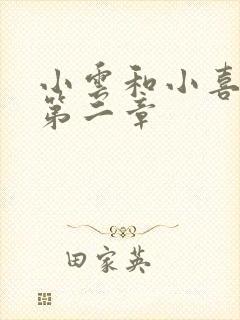 小雲和小喜
第二章
田家英